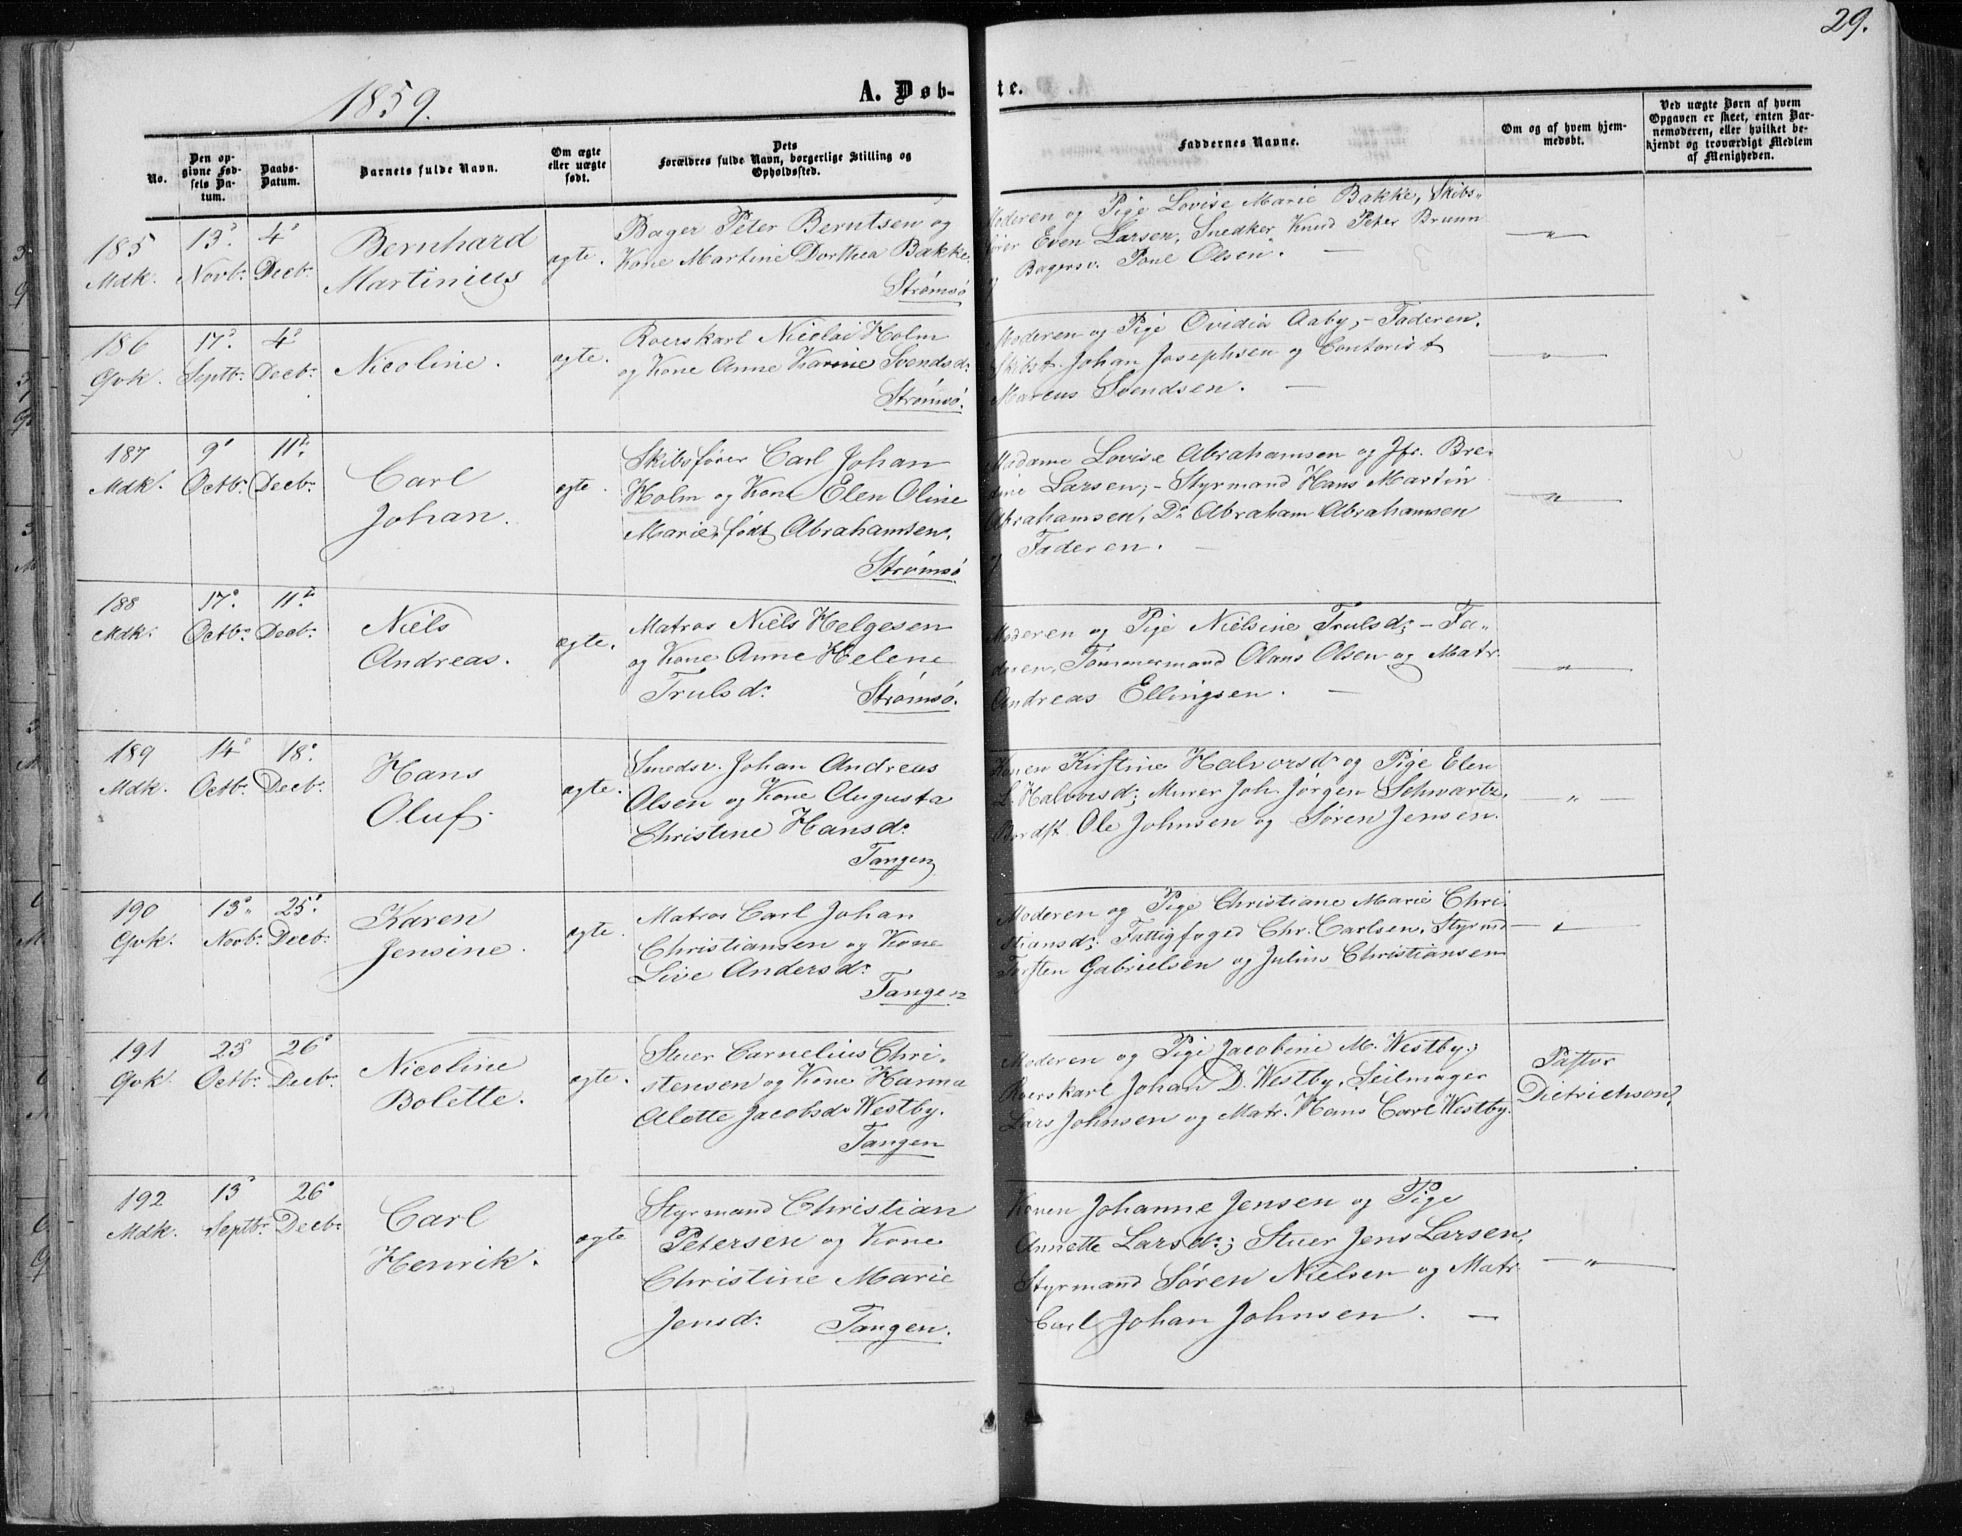 29.
1859.
A. Døb-
te.
No.
Den op-
givne Fød-
sels Da-
tum.
Daabs-
Datum.
Barnets fulde Navn.
Om ægte
eller uægte
født.
Dets
Forældres fulde Navn, borgerlige Stilling og
Opholdssted.
Faddernes Navne.
Om og af hvem hjem-
medøbt.
Ved uægte Børn af hvem
Opgaven er skeet, enten Bar-
nemoderen, eller hvilket be-
kjendt og troværdigt Medlem
af Menigheden.
185
Mdk.
13de
Novbr.
4de
Decbr.
Bernhard
Martinius
ægte.
Bager Peter Berntsen og
Kone Martine Dorthea Bakke.
Strømsö
Moderen og Pige Lovise Marie Bakke, Skibs-
fører Even Larsen, Snedker Knud Peter Bruun
og Bagersv. Poul Olsen. —
— " —
186
Qvk.
17de
Septbr.
4de
Decbr.
Nicoline.
ægte.
Roerskarl Nicolai Holm
og Kone Anne Karine Svendsdr.
Strømsö.
Moderen og Pige Ovidia Aaby, – Faderen,
Skibst. Johan Josephsen og Contorist
Marcus Svendsen. —
— " —
187
Mdk.
9de
Octbr.
11te
Decbr.
Carl
Johan.
ægte.
Skibsfører Carl Johan
Holm og Kone Elen Oline
Marie, født Abrahamsen.
Strømsö
Madame Lovise Abrahamsen og Jfr. Bre-
dine Larsen, – Styrmand Hans Martin
Abrahamsen, Do Abraham Abrahamsen
og Faderen. —
— " —
188
Mdk.
17de
Octbr.
11te
Decbr.
Niels
Andreas.
ægte.
Matros Niels Helgesen
og Kone Anne Helene
Trulsdr. Strømsö.
Moderen og Pige Nielsine Trulsd; – Fa-
deren, Tømmermand Olaus Olsen og Matr.
Andreas Ellingsen. —
— " —
189
Mdk.
14de
Octbr.
18de
Decbr.
Hans
Oluf.
ægte.
Smedsv. Johan Andreas
Olsen og Kone Augusta
Christine Hansdr.
Tangen
Konen Kirstine Halvorsdr og Pige Elen
L. Halvorsd; Murer Joh. Jörgen Schwartz,
Bordst. Ole Johnsen og Søren Jensen.
— " —
190
Qvk.
13de
Novbr.
25de
Decbr.
Karen
Jensine.
ægte.
Matros Carl Johan
Christiansen og Kone
Live Andersdr.
Tangen
Moderen og Pige Christiane Marie Chri-
stiansd; Fattigfoged Chr. Carlsen, Styrmd
Torsten Gabrielsen og Julius Christiansen
— " —
191
Qvk.
25
Octbr.
26de
Decbr.
Nicoline
Bolette.
ægte.
Stuer Carnelius Chri-
stensen og Kone Hanna
Alette Jacobsdr Westby.
Tangen
Moderen og Pige Jacobine M. Westby;
Roerskarl Johan D. Westby, Seilmager
Lars Johnsen og Matr. Hans Carl Westby.
Pastor
Dietrichson.
192
Mdk.
13de
Septbr.
26de
Decbr.
Carl
Henrik.
ægte
Styrmand Christian
Petersen og Kone
Christine Marie
Jensdr. Tangen.
Konen Johanne Jensen og Pige
Annette Larsdr.; Stuer Jens Larsen,
Styrmand Søren Nielsen og Matr
Carl Johan Johnsen. —
— " —